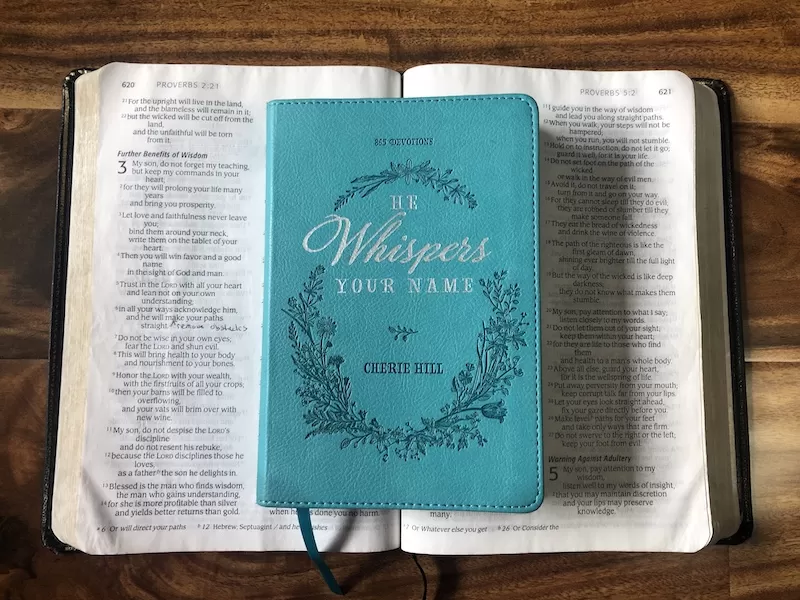 620 PROVERBS 2:21
21For the upright will live in the land,
and the blameless will remain in it;
22but the wicked will be cut off from the
land,
and the unfaithful will be torn
from it.
Further Benefits of Wisdom
3 My son, do not forget my teaching,
but keep my commands in your
heart,
2for they will prolong your life many
years
and bring you prosperity.
3Let love and faithfulness never leave
you;
bind them around your neck,
write them on the tablet of your
heart.
4Then you will win favor and a good
name
in the sight of God and man.
5Trust in the LORD with all your heart
and lean not on your own
understanding;
6in all your ways acknowledge him,
and he will make your paths
straight. remove obstacles
7Do not be wise in your own eyes;
fear the LORD and shun evil.
8This will bring health to your body
and nourishment to your bones.
9Honor the LORD with your wealth,
with the firstfruits of all your crops;
10then your barns will be filled to
overflowing,
and your vats will brim over with
new wine.
11My son, do not despise the LORD's
discipline
and do not resent his rebuke,
12because the LORD disciplines those he
loves,
as a father the son he delights in.
13Blessed is the man who finds wisdom,
the man who gains understanding,
14for she is more profitable than silver
and yields better returns than gold.
b6 Or will direct your paths b12 Hebrew; Septuagint / and he
done you no harm.
365 DEVOTIONS
HE
Whispers
YOUR NAME
CHERIE HILL
PROVERBS 5:2 621
11I guide you in the way of wisdom
and lead you along straight paths.
12When you walk, your steps will not be
hampered;
when you run, you will not stumble.
13Hold on to instruction, do not let it go;
guard it well, for it is your life.
14Do not set foot on the path of the
wicked
or walk in the way of evil men.
15Avoid it, do not travel on it;
turn from it and go on your way.
16For they cannot sleep till they do evil;
they are robbed of slumber till they
make someone fall.
17They eat the bread of wickedness
and drink the wine of violence.
18The path of the righteous is like the
first gleam of dawn,
shining ever brighter till the full light
of day.
19But the way of the wicked is like deep
darkness;
they do not know what makes them
stumble.
20My son, pay attention to what I say;
listen closely to my words.
21Do not let them out of your sight,
keep them within your heart;
22for they are life to those who find
them
and health to a man's whole body.
23Above all else, guard your heart,
for it is the wellspring of life.
24Put away perversity from your mouth;
keep corrupt talk far from your lips.
25Let your eyes look straight ahead,
fix your gaze directly before you.
26Make level paths for your feet
and take only ways that are firm.
27Do not swerve to the right or the left;
keep your foot from evil.
Warning Against Adultery
5 My son, pay attention to my
wisdom,
listen well to my words of insight,
2that you may maintain discretion
and your lips may preserve
knowledge.
many.
7 Or Whatever else you get 26 Or Consider the